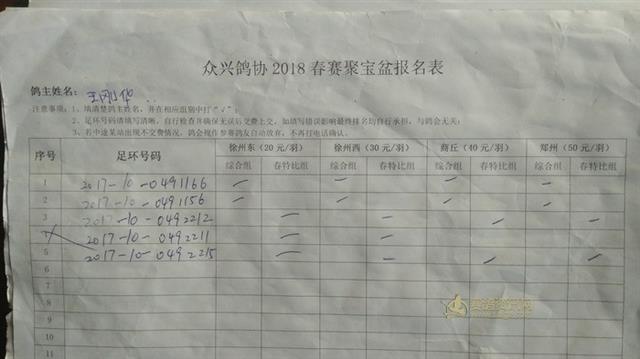 众兴鸽协 2018 春赛聚宝盆报名表
鸽主姓名: 王刚华
注意事项: 1、填清楚鸽主姓名,并在相应组别中打“√”;
2、足环号码请填写清晰,自行检查并确保无误后交费上交,如填写错误影响最终排名均自行承担,与鸽会无关;
3、名中途某站出现不交费情况,鸽会视作参赛鸽友自动放弃,不再打电话确认。
序号 足环号码 徐州东(20 元/羽) 徐州西(30 元/羽) 商丘(40 元/羽) 郑州(50 元/羽)
综合组 春特比组 综合组 春特比组 综合组 春特比组 综合组 春特比组
1 2017-10-0491166 — — — —
2 2017-10-0491156 — — — —
3 2017-10-0492212 — — — —
2017-10-0492211 —
5 2017-10-0492215 — — — —
6
7
8
9
10
11